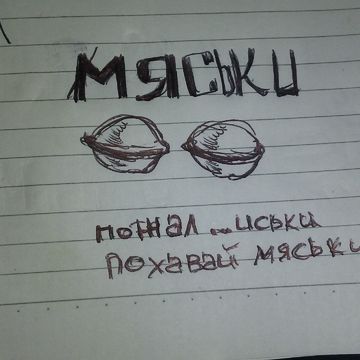 МЯСЬКИ
ПОТНАЛ ...ИСЬКИ
ПОХАВАЙ МЯСЬКИ